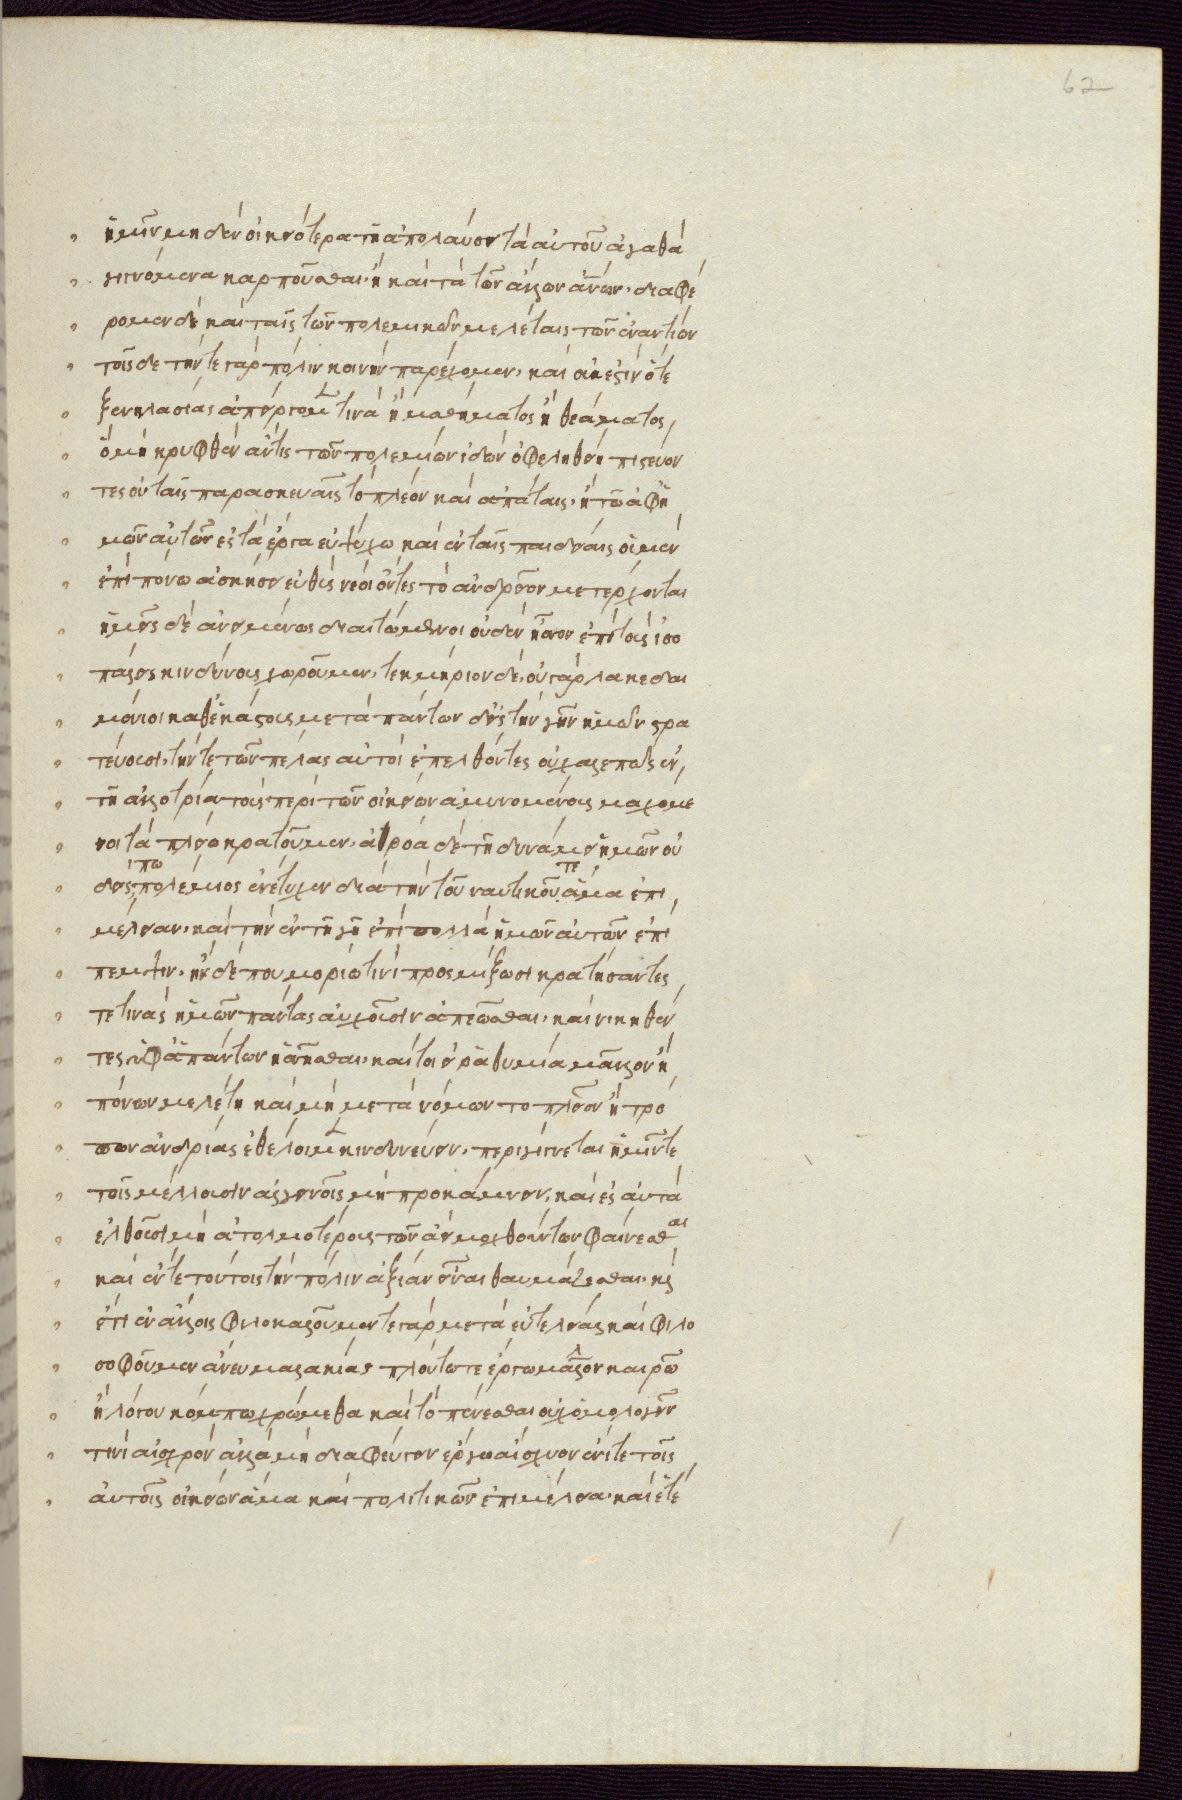 ἡμῖν μηδὲν οἰκειότερα τῆ ἀπολαύσει τὰ αὐτοῦ ἀγαθὰ
γιγνόμενα καρποῦσθαι· ἢ καὶ τὰ τῶν ἄλλων ἀνων· διαφέ
ρομεν δὲ καὶ ταῖς τῶν πολεμικῶν μελέταις τῶν ἐναντίων
τοῖσδε τήν τε γὰρ πόλιν κοινὴν παρέχομεν· καὶ οὐκ ἔστιν ὅτε
ξενηλασίαις ἀπείργομεν τινὰ ἢ μαθήματος ἢ θεάματος,
ὃ μὴ κρυφθὲν ἄν τις τῶν πολεμίων ἰδὼν ὠφεληθείη πιστεύον
τες οὐ ταῖς παρασκευαῖς τὸ πλέον καὶ ἀπάταις· ἢ τῶ ἀφ' ἡ
μῶν αὐτῶν ἐς τὰ ἔργα εὐψύχω καὶ ἐν ταῖς παιδείαις οἱ μὲν
ἐπιπόνω ἀσκήσει εὐθὺς νέοι ὄντες τὸ ἀνδρεῖον μετέρχονται
ἡμεῖς δὲ ἀνειμένως διαιτώμενοι οὐδὲν ἧσσον ἐπὶ τοὺς ἰσο
παλεῖς κινδύνους χωροῦμεν· τεκμήριον δέ· οὐ γὰρ λακεδαι
μόνιοι καθ' ἑκάστους μετὰ πάντων δ' ἐς τὴν γῆν ἡμῶν στρα
τεύουσι· τήν τε τῶν πέλας αὐτοὶ ἐπελθόντες οὐ χαλεπῶς ἐν
τῆ ἀλλοτρία τοὺς περὶ τῶν οἰκείων ἀμυνομένους μαχόμε
νοι τὰ πλείω κρατοῦμεν· ἀθρόα δὲ τῆ δυνάμει ἡμῶν οὐ
δείς πω πολέμιος ἐνέτυχεν διὰ τὴν τοῦ ναυτικοῦ τε ἅμα ἐπι
μέλειαν· καὶ τὴν ἐν τῆ γῆ ἐπὶ πολλὰ ἡμῶν αὐτῶν ἐπί
πεμψιν· ἢν δέ που μορίω τινὶ προσμίξωσι κρατήσαντές
τέ τινας ἡμῶν πάντας αὐχοῦσιν ἀπεῶσθαι· καὶ νικηθέν
τες ὑφ' ἁπάντων ἡσσῆσθαι· καίτοι εἰ ῥαθυμία μᾶλλον ἢ
πόνων μελέτη καὶ μὴ μετὰ νόμων τὸ πλεῖον ἢ τρό
πων ἀνδρίας ἐθέλοιμεν κινδυνεύειν· περιγίγνεται ἡμῖν τε
τοῖς μέλλουσιν ἀλγεινοῖς μὴ προκάμνειν· καὶ ἐς αὐτὰ
ἐλθοῦσι μὴ ἀτολμοτέρους τῶν ἀεὶ μοχθούντων φαίνεσθαι
καὶ ἔν τε τούτοις τὴν πόλιν ἀξίαν εἶναι θαυμάζεσθαι· καὶ
ἔτι ἐν ἄλλοις φιλοκαλοῦμέν τε γὰρ μετὰ εὐτελείας καὶ φιλο
σοφοῦμεν ἄνευ μαλακίας πλούτω τε ἔργω μᾶλλον καιρῶ
ἢ λόγου κόμπω χρώμεθα καὶ τὸ πένεσθαι οὐχ ὁμολογεῖν
τινὶ αἰσχρὸν ἀλλὰ μὴ διαφεύγειν ἔργω αἴσχιον ἔνι τε τοῖς
αὐτοῖς οἰκείων ἅμα καὶ πολιτικῶν ἐπιμέλεια· καὶ ἑτέ
62